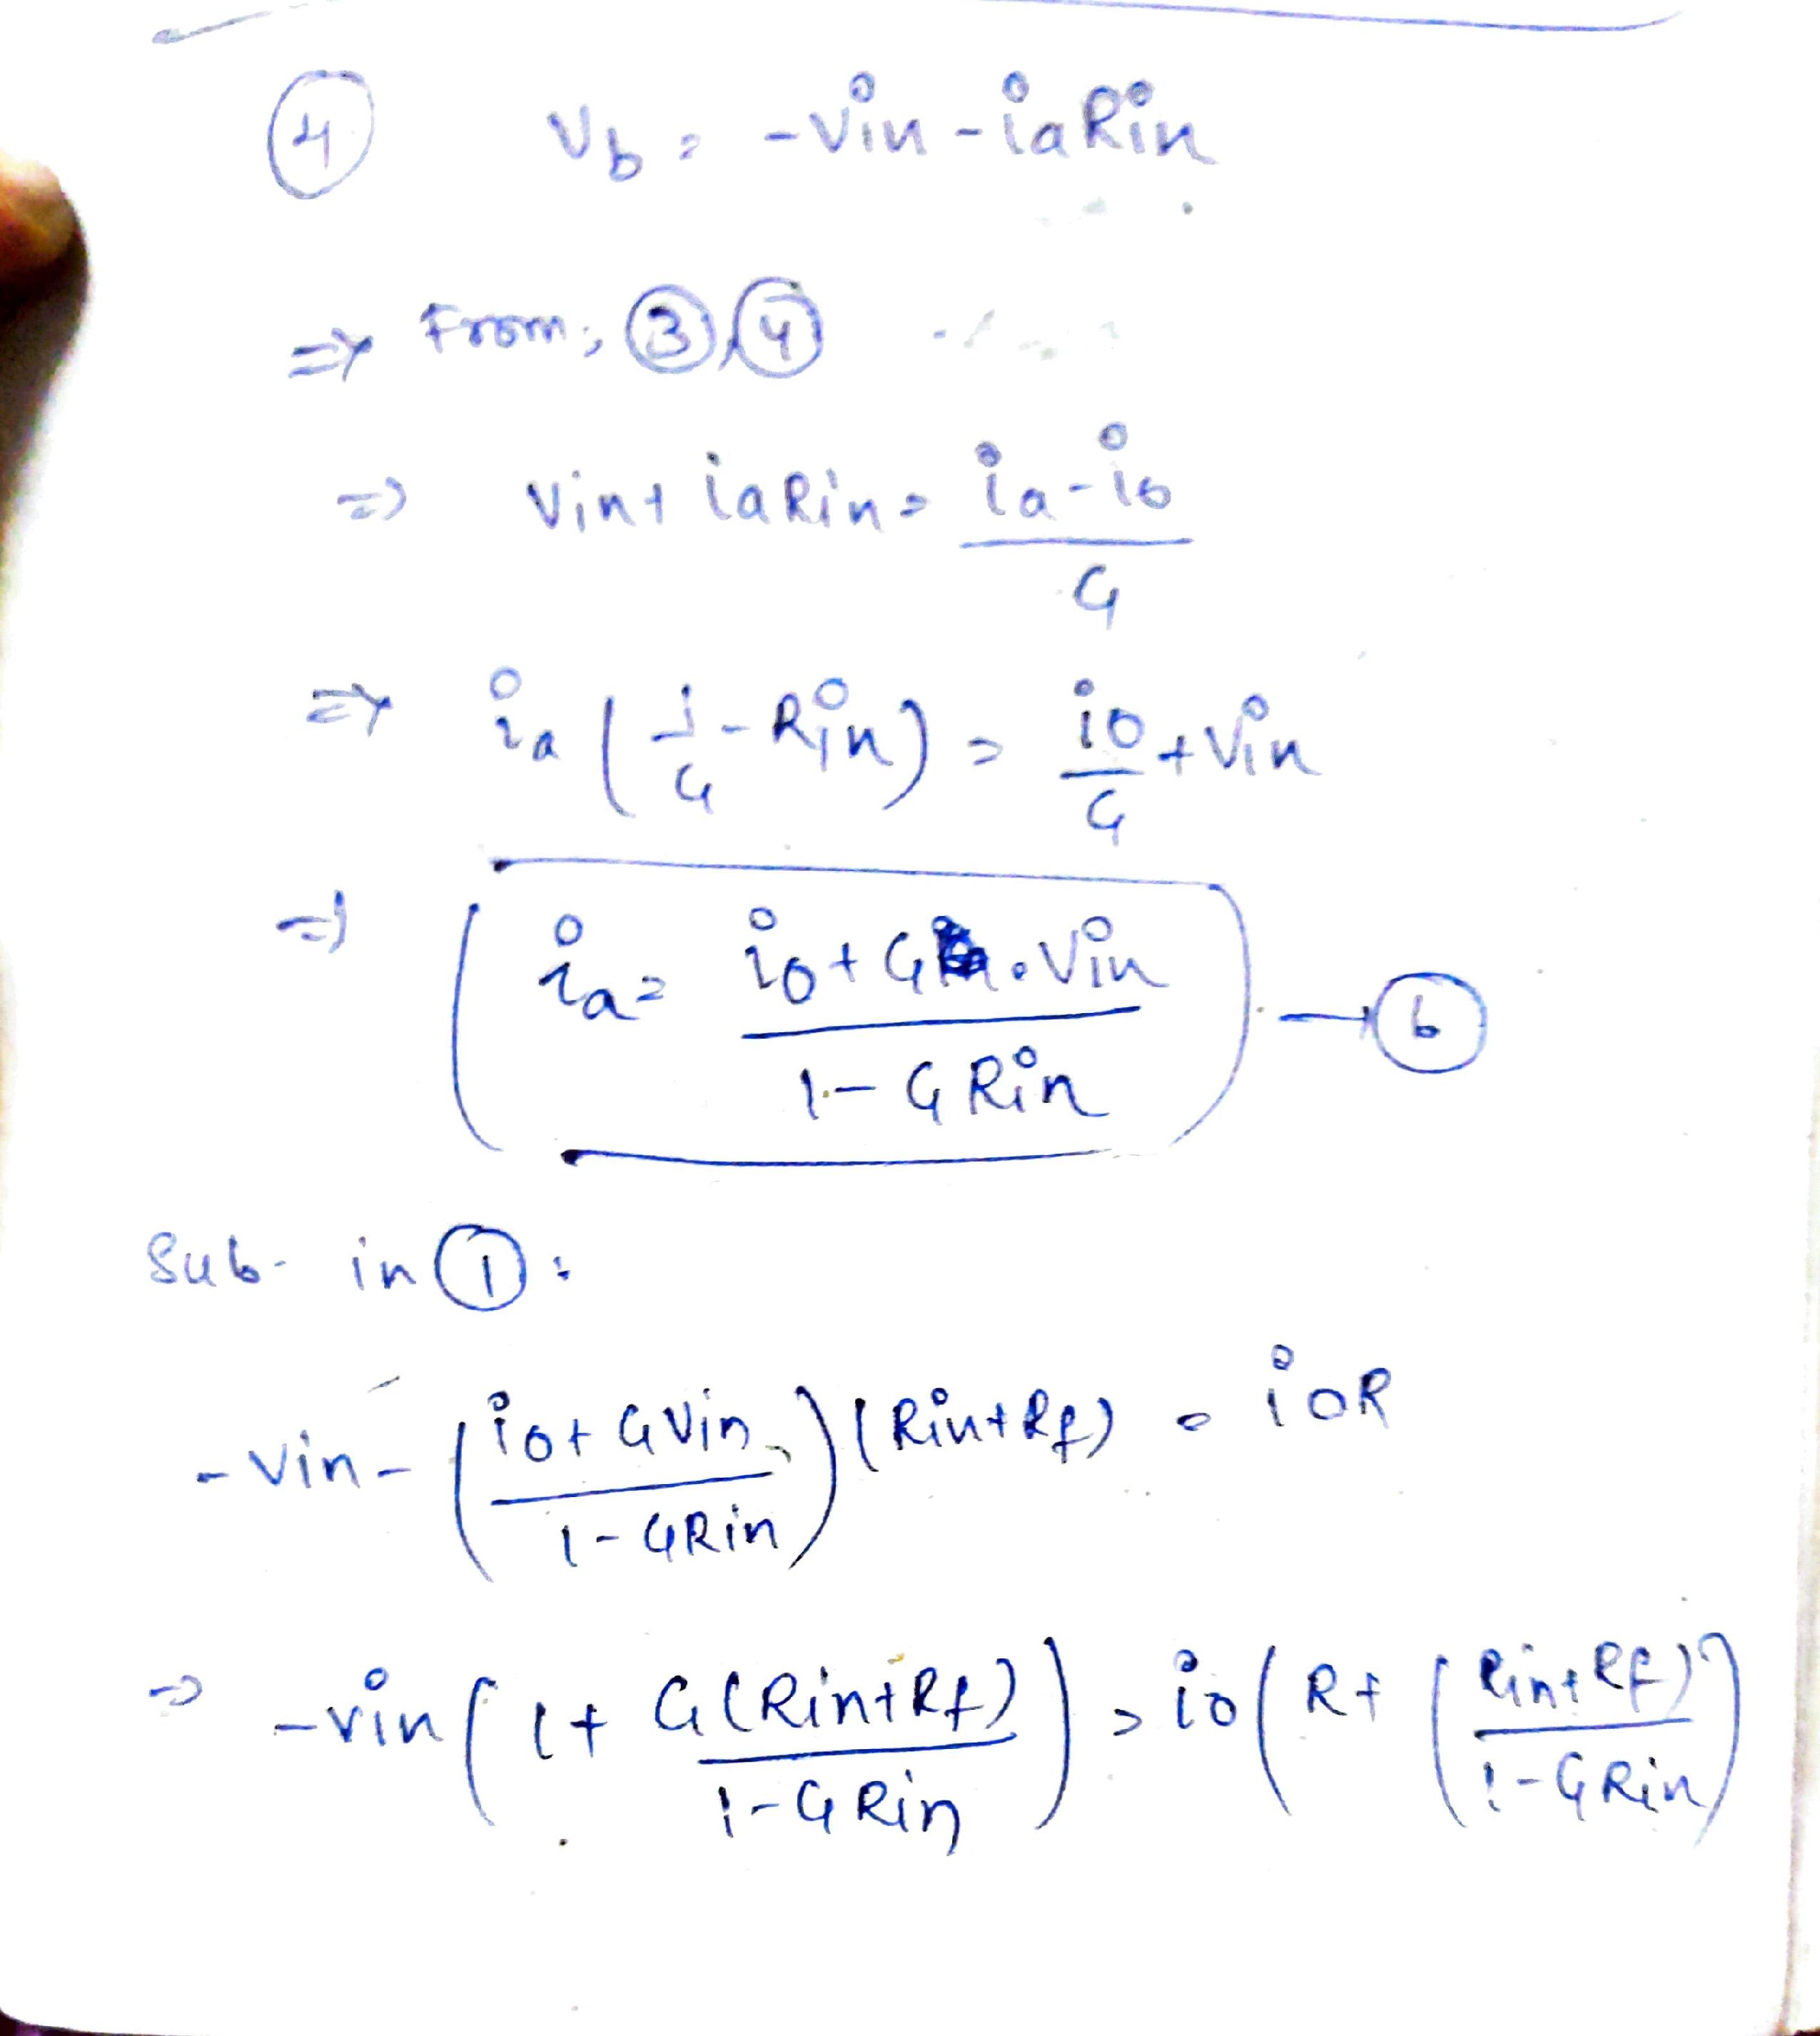 ④ Vb = -Vin - iaRin
=> From, ③,④
=> Vin + iaRin = (ia - io)/G
=> ia(1/G - Rin) = io/G + Vin
=> ia = (io + G.Vin)/(1 - GRin) → ⑥
Sub- in ①:
-Vin - ((io + GVin)/(1 - GRin))(Rin + Rf) = ioR
=> -Vin(1 + G(Rin + Rf)/(1 - GRin)) = io(R + ((Rin + Rf)/(1 - GRin)))